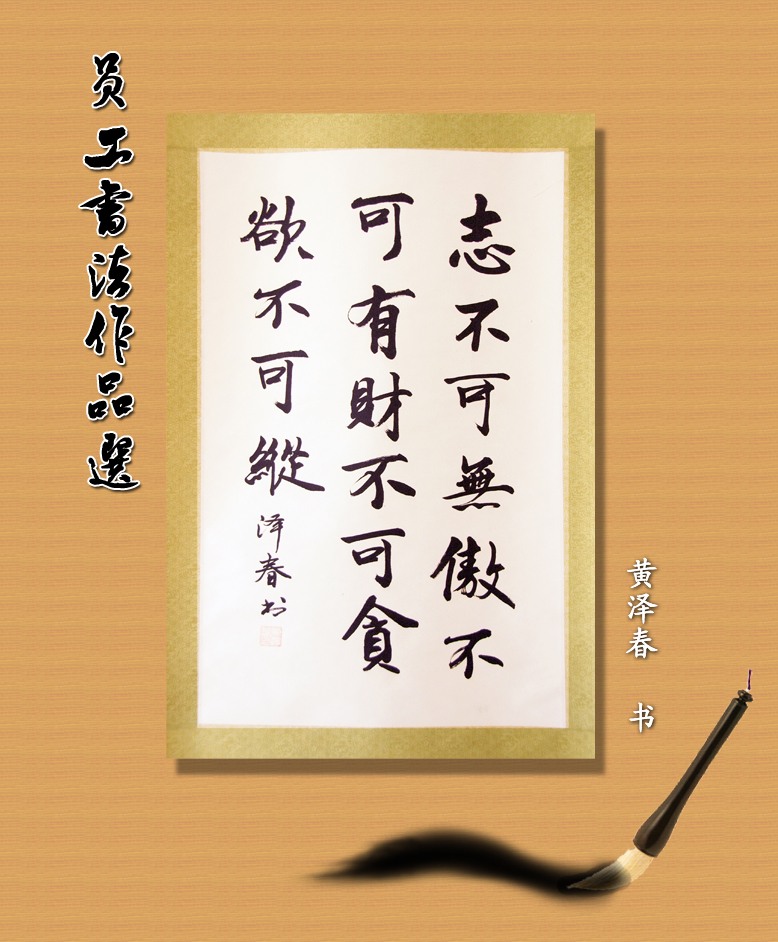 员工書法作品選
志不可無傲不
可有財不可貪
欲不可縱
泽春书
黄泽春 书